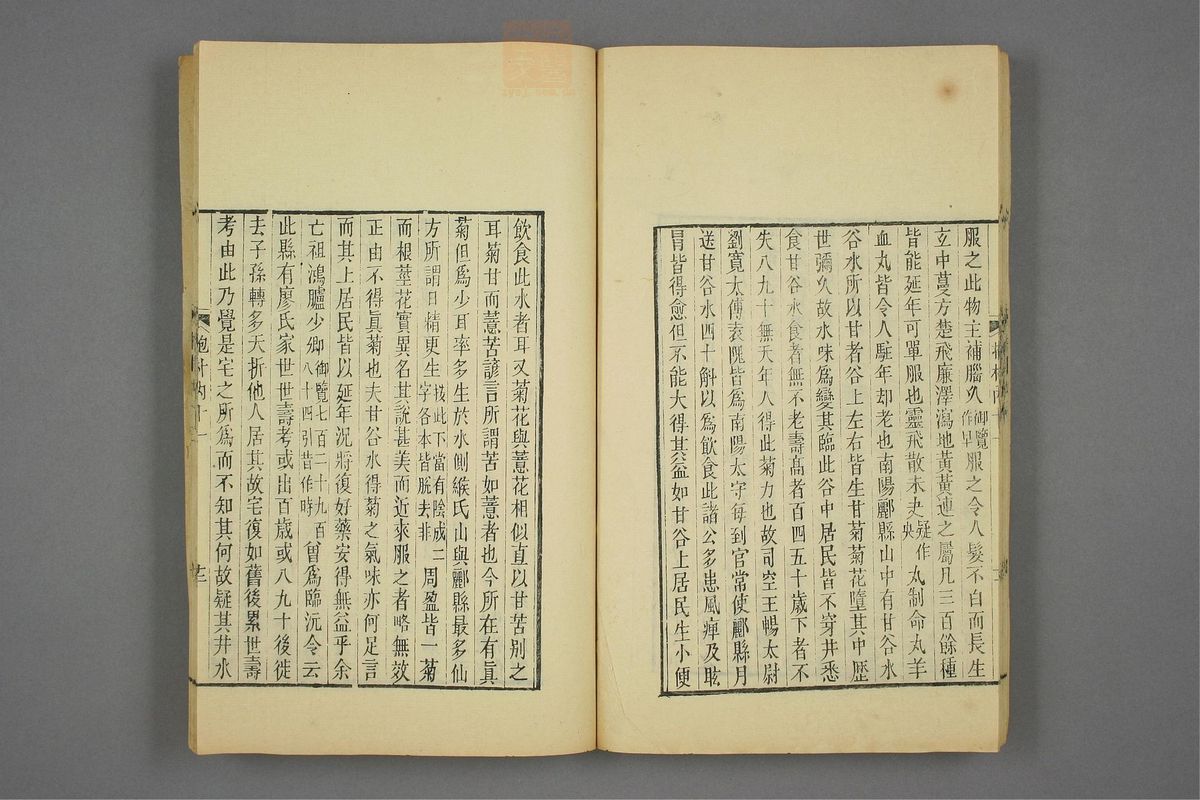 服之此物主補腦久御覽作早服之令人髮不白而長生
立中蔓方楚飛廉澤瀉地黃黃連之屬凡三百餘種
皆能延年可單服也靈飛散未夬疑作央丸制命丸羊
血丸皆令人駐年却老也南陽酈縣山中有甘谷水
谷水所以甘者谷上左右皆生甘菊菊花墮其中歷
世彌久故水味爲變其臨此谷中居民皆不穿井悉
食甘谷水食者無不老壽高者百四五十歲下者不
失八九十無夭年人得此菊力也故司空王暢太尉
劉寬太傅袁隗皆爲南陽太守每到官常使酈縣月
送甘谷水四十斛以爲飲食此諸公多患風痺及眩
冒皆得愈但不能大得其益如甘谷上居民生小便
飲食此水者耳又菊花與薏花相似直以甘苦別之
耳菊甘而薏苦諺言所謂苦如薏者也今所在有眞
菊但爲少耳率多生於水側緱氏山與酈縣最多仙
方所謂日精更生按此下當有陰成二字各本皆脫去非周盈皆一菊
而根莖花實異名其說甚美而近來服之者略無效
正由不得眞菊也夫甘谷水得菊之氣味亦何足言
而其上居民皆以延年況將復好藥安得無益乎余
亡祖鴻臚少卿御覽七百二十九百八十四引昔作時曾爲臨沅令云
此縣有廖氏家世世壽考或出百歲或八九十後徙
去子孫轉多夭折他人居其故宅復如舊後累世壽
考由此乃覺是宅之所爲而不知其何故疑其井水